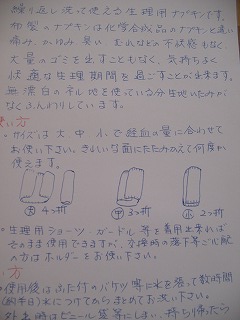 繰り返し洗って使える生理用ナプキンです。
布製のナプキンは化学合成品のナプキンと違い
痛み、かゆみ、臭い むれなどの不快感もなく
大量のゴミを出すこともなく、気持ちよく
快適な生理期間を過ごすことが出来ます。
無漂白のネル地を使っている分生地いたみが
なくふんわりしています。
使い方
・サイズは大、中、小で経血の量に合わせて
お使い下さい。きれいな面にたたみかえて何度か
使えます。
大 4つ折 中 3つ折 小 2つ折
・生理用ショーツ・ガードル等を着用出来れば
そのまま使用できますが、交換時の落下等ご心配
の方はホルダーをお使い下さい。
方
・使用後はふた付のバケツ等に水を張って数時間
(約半日)水につけてからまとめてお洗い下さい。
外出時はビニール袋等にしまい、持ち帰ったら